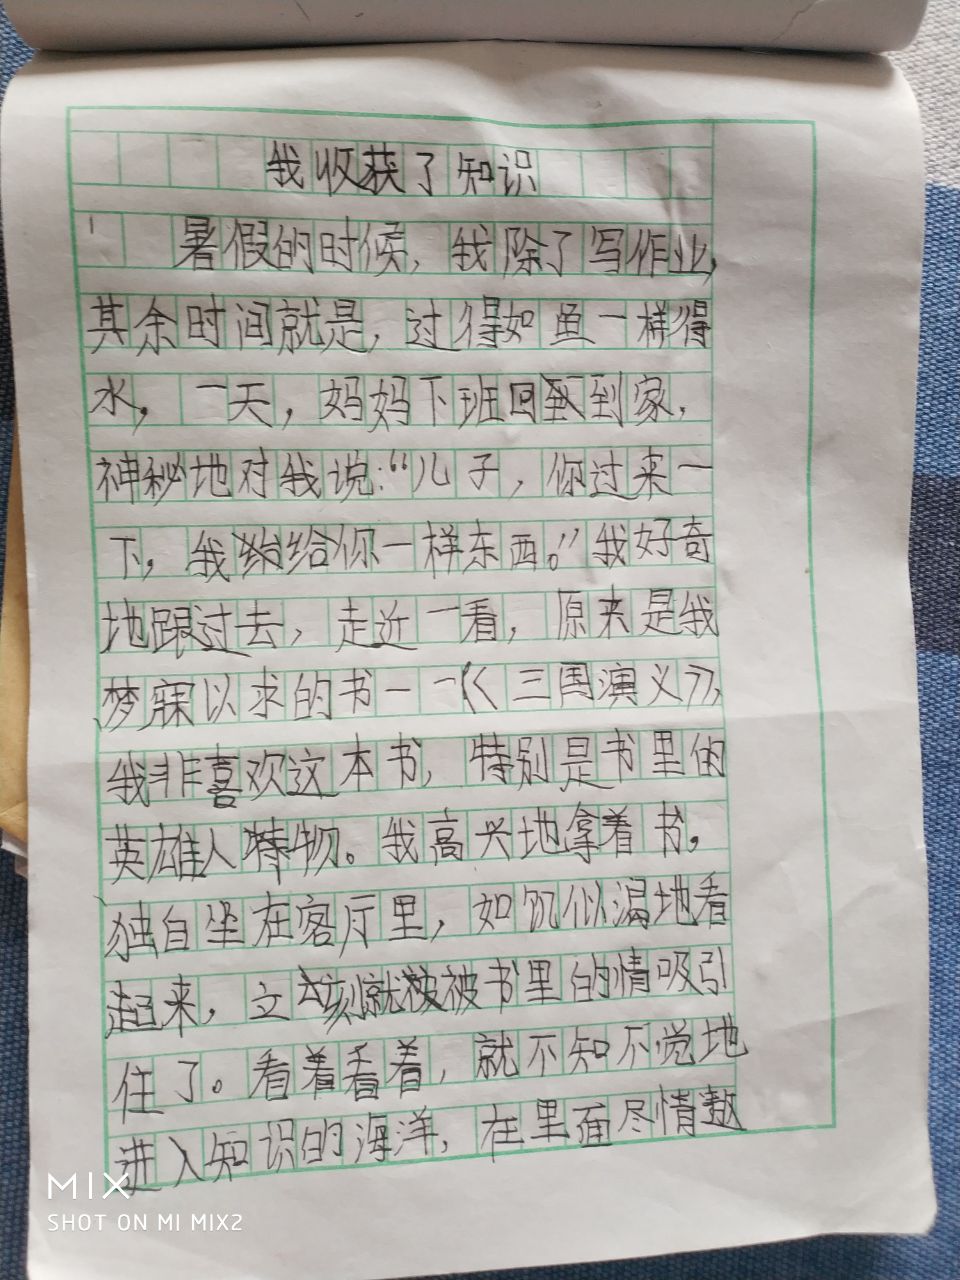 我收获了知识
暑假的时候,我除了写作业,
其余时间就是,过得如鱼一样得
水,一天,妈妈下班回到家,
神秘地对我说:“儿子,你过来一
下,我给你一样东西。”我好奇
地跟过去,走近一看,原来是我
梦寐以求的书——《三国演义》,
我非喜欢这本书,特别是书里的
英雄人物。我高兴地拿着书。
独自坐在客厅里,如饥似渴地看
起来,立刻就被书里的情吸引
住了。看着看着,就不知不觉地
进入知识的海洋,在里面尽情遨
MIX
SHOT ON MI MIX2